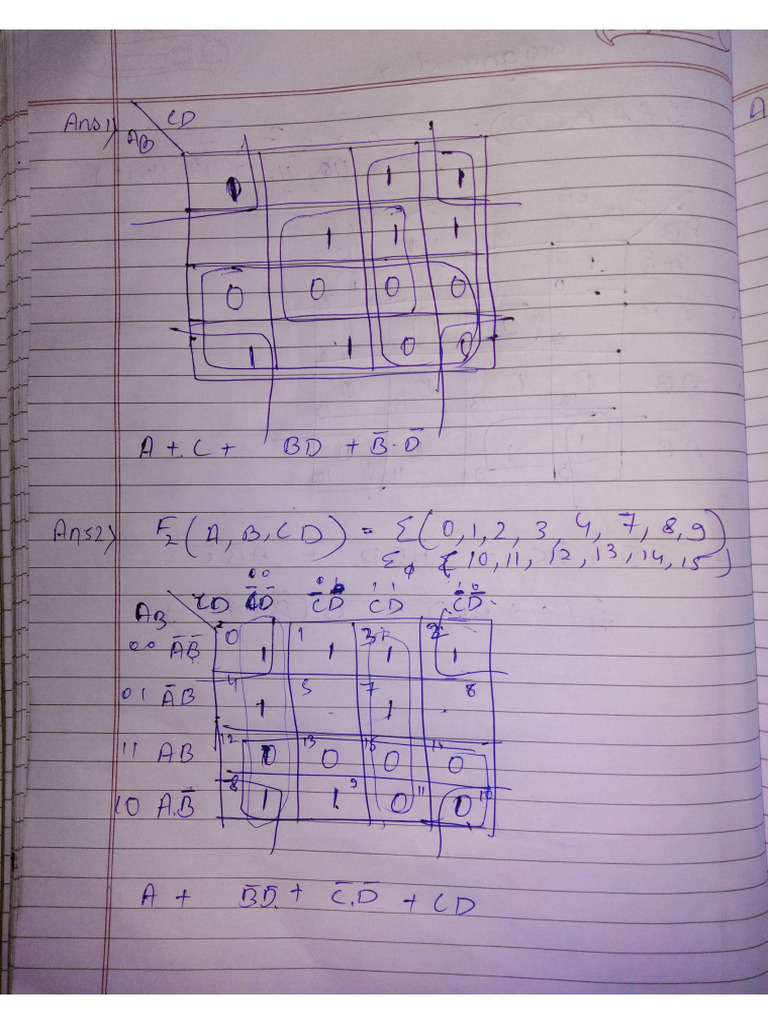 Ans1)
CD
AB
1 1 1
1 1 1
0 0 0 0
1 1 0 0
A + C + BD + B̅·D̅
Ans2) F₂(A,B,CD) = Σ(0,1,2,3,4,7,8,9)
Σϕ (10,11,12,13,14,15)
00 01 11 10
AB CD C̅D̅ C̅D CD CD̅
00 A̅B̅ 0 1 1 1 3 1 2 1
01 A̅B 4 1 5 7 1 8
11 AB 12 0 13 0 15 0 14 0
10 AB̅ 8 1 1 9 0 11 0 10
A + B̅D̅ + C̅.D̅ + CD